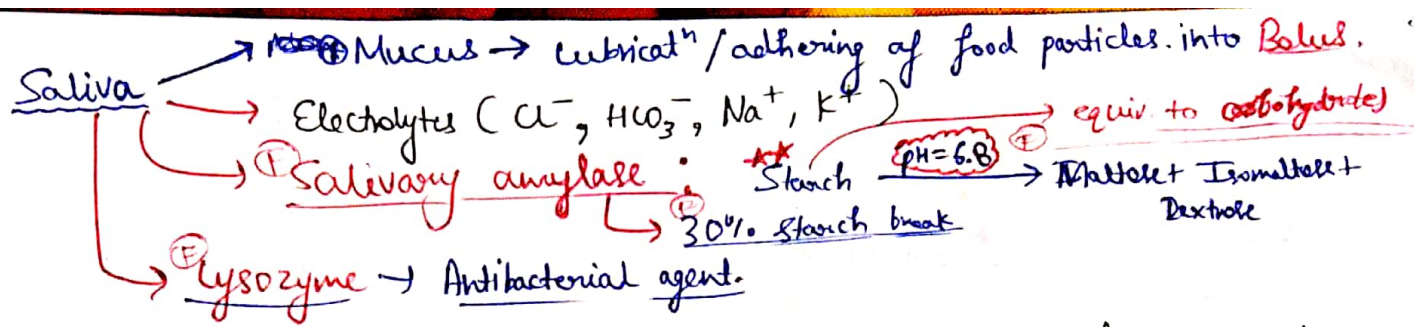 Mucus → Lubricatⁿ / adhering of food particles. into Bolus.
Saliva
Electrolytes ( Cl⁻, HCO₃⁻, Na⁺, K⁺ )
equiv. to carbohydrates)
Salivary amylase : Starch pH=6.8 → Maltose + Isomaltose +
Dextrose
30% Starch break
Lysozyme → Antibacterial agent.